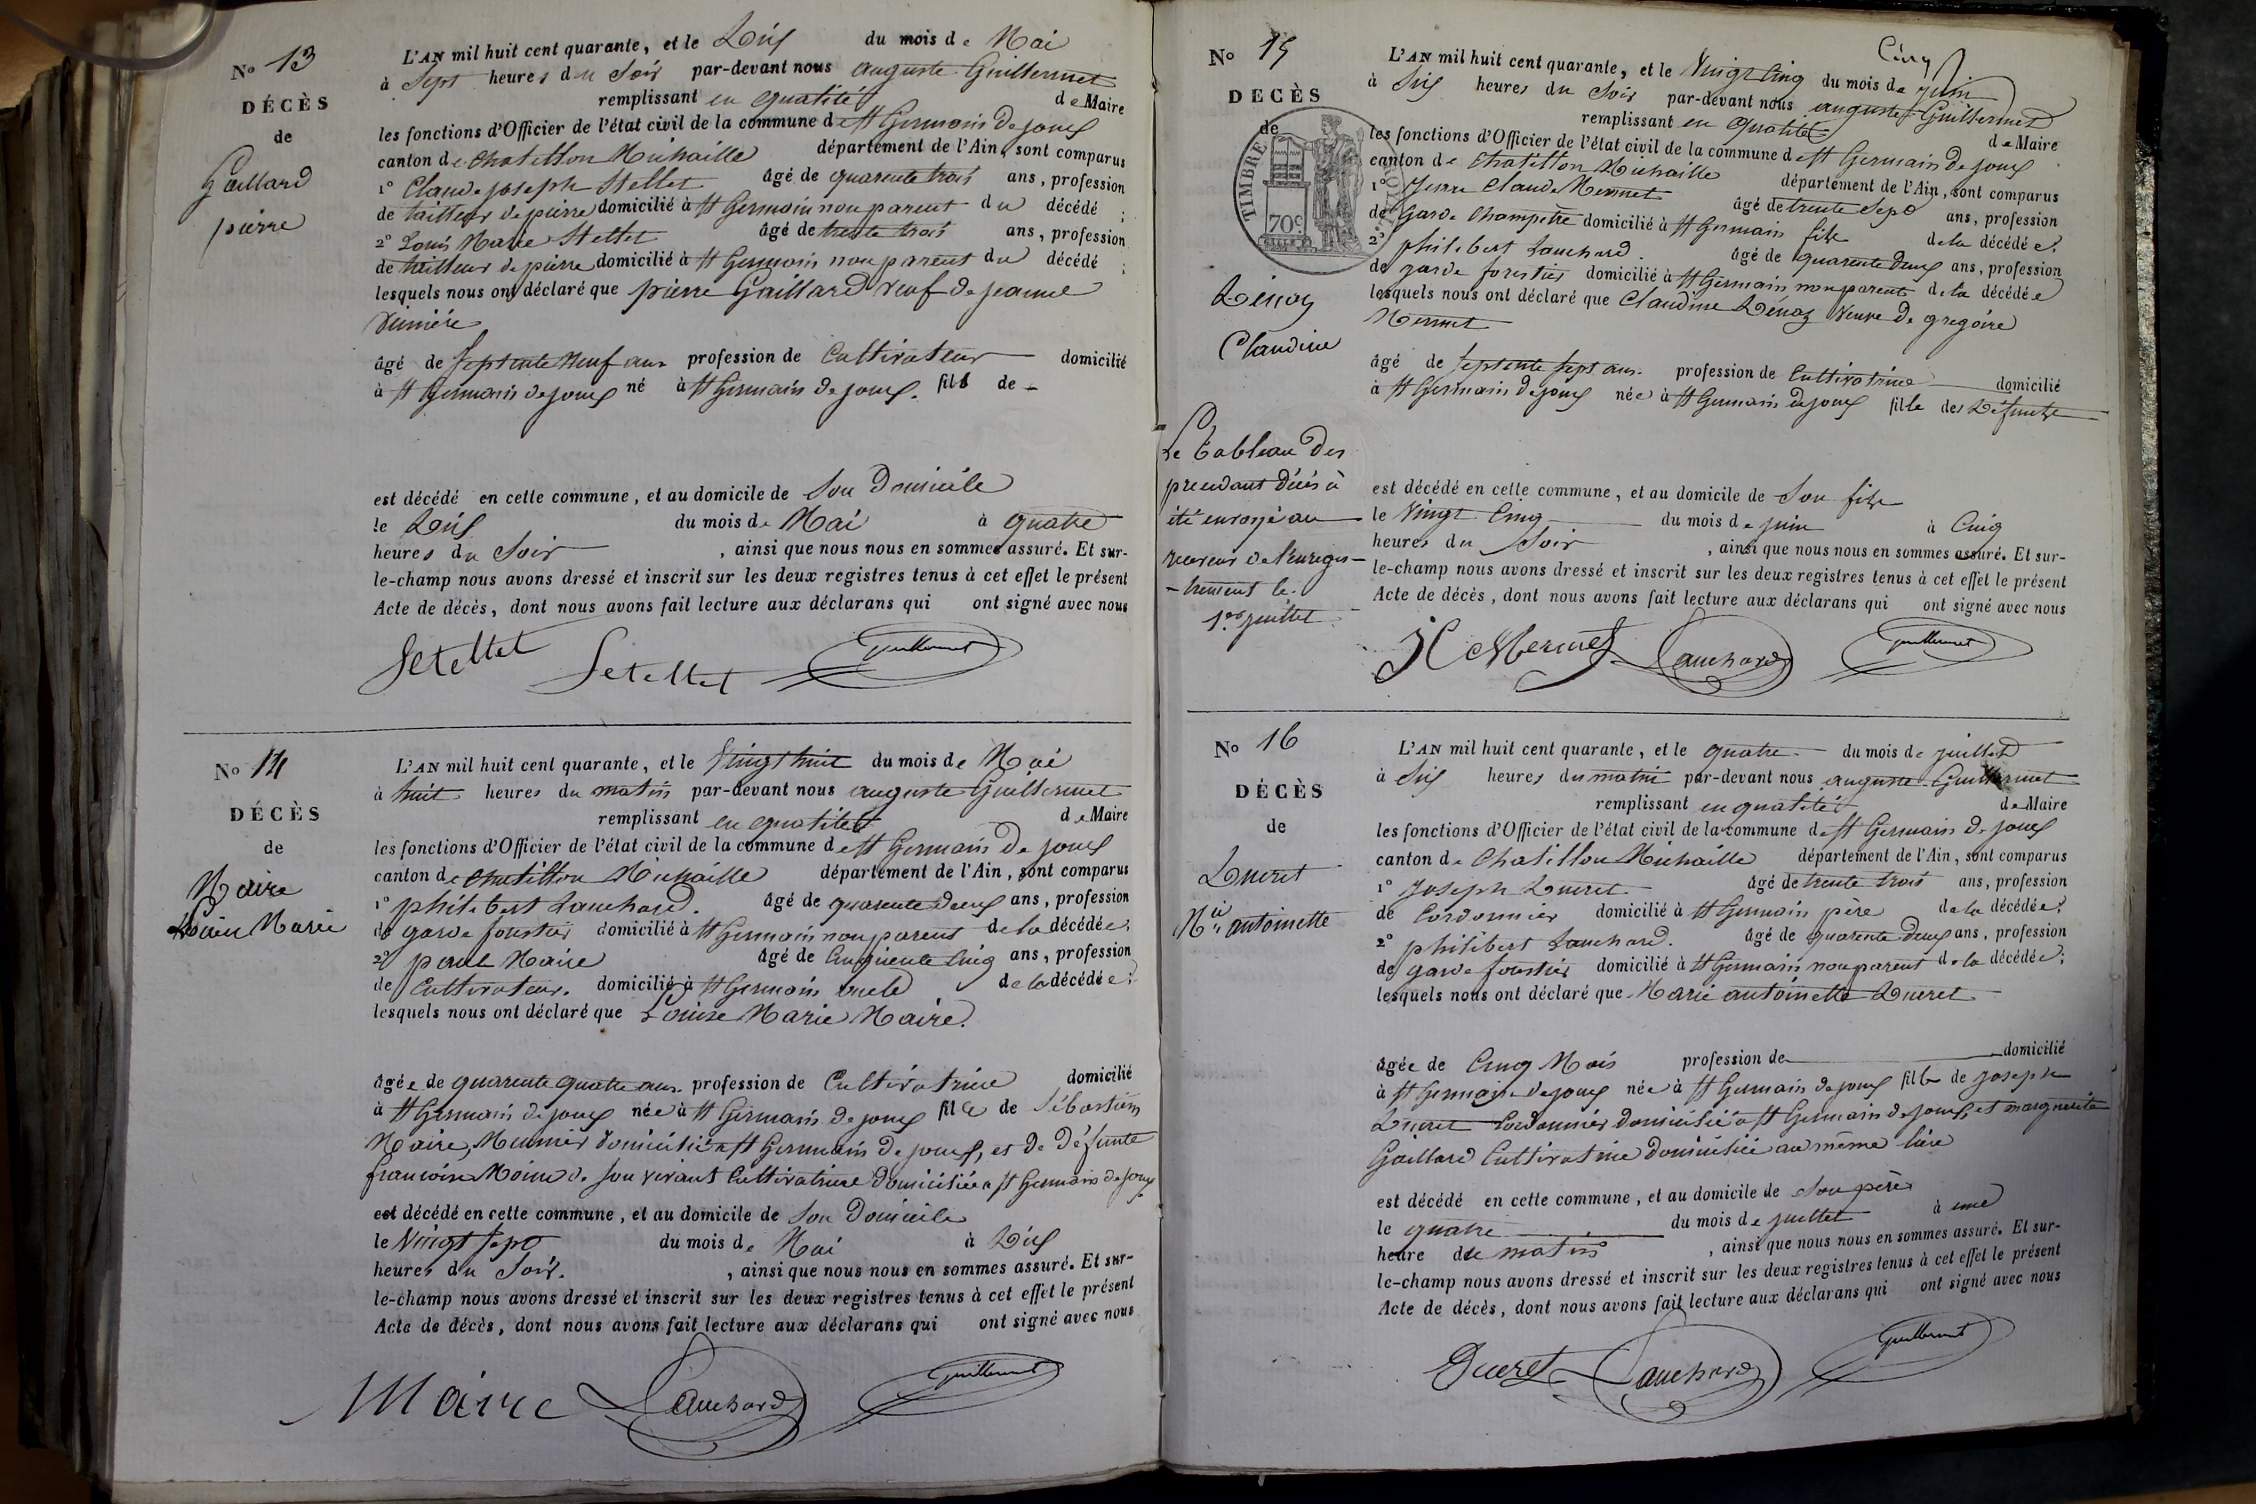 No 13
DÉCÈS
de
Gaillard
pierre
L'AN mil huit cent quarante, et le Dix du mois de Mai
à Sept heures du Soir par-devant nous auguste Guillermet
remplissant en qualité de Maire
les fonctions d'Officier de l'état civil de la commune de St Germain de joux
canton de Chatillon Michaille département de l'Ain, sont comparus
1º Claude joseph Stellet âgé de quarente trois ans, profession
de tailleur de pierre domicilié à St Germain non parent du décédé ;
2º Louis Marie Stellet âgé de trente trois ans, profession
de tailleur de pierre domicilié à St Germain non parent du décédé ;
lesquels nous ont déclaré que pierre Gaillard veuf de jeanne
âgé de Septente Neuf ans profession de Cultivateur domicilié
à St Germain de joux né à St Germain de joux. fils de -
est décédé en cette commune, et au domicile de Son Domicile
le Dix du mois de Mai à quatre
heures du Soir, ainsi que nous nous en sommes assuré. Et sur-
le-champ nous avons dressé et inscrit sur les deux registres tenus à cet effet le présent
Acte de décès, dont nous avons fait lecture aux déclarans qui ont signé avec nous
Setellet Setellet Guillermet
No 14
DÉCÈS
de
Maire
Marie
L'AN mil huit cent quarante, et le Vingt huit du mois de Mai
à huit heures du matin par-devant nous auguste Guillermet
remplissant en qualité de Maire
les fonctions d'Officier de l'état civil de la commune de St Germain de joux
canton de Chatillon Michaille département de l'Ain, sont comparus
1º philibert Lanchard. âgé de quarente Deux ans, profession
de garde forestier domicilié à St Germain non parent de la décédée ;
2º paul Maire âgé de Cinquente Cinq ans, profession
de Cultivateur. domicilié à St Germain oncle de la décédée ;
lesquels nous ont déclaré que Louise Marie Maire.
âgée de quarente quatre ans. profession de Cultivatrice domicilié
à St Germain de joux née à St Germain de joux fille de Sébastien
Maire, Meunier domicilié à St Germain de joux, et de Défunte
francoise de Son vivant Cultivatrice domiciliée à St Germain de joux
est décédé en cette commune, et au domicile de Son Domicile
le Vingt Sept du mois de Mai à Dix
heures du Soir., ainsi que nous nous en sommes assuré. Et sur-
le-champ nous avons dressé et inscrit sur les deux registres tenus à cet effet le présent
Acte de décès, dont nous avons fait lecture aux déclarans qui ont signé avec nous
Maire Lanchard Guillermet
No 15
DÉCÈS
de
TIMBRE ROYAL
70 c.
Dénoz
Claudine
Le tableau des
precedant Décès à
été envoyé au
receveur de l'enregis-
-trement le.
1er juillet
Cinq
L'AN mil huit cent quarante, et le Vingt Cinq du mois de juin
à Six heures du Soir par-devant nous auguste Guillermet
remplissant en qualité de Maire
les fonctions d'Officier de l'état civil de la commune de St Germain de joux
canton de Chatillon Michaille département de l'Ain, sont comparus
1º Claude Mermet âgé de trente Sept ans, profession
de Garde Champêtre domicilié à St Germain fils de la décédée ;
2º philibert Lanchard. âgé de quarente Deux ans, profession
de garde forestier domicilié à St Germain non parent de la décédée
lesquels nous ont déclaré que Claudine Dénoz Veuve de gregoire
Mermet
âgé de Septente Sept ans. profession de Cultivatrice domicilié
à St Germain de joux née à St Germain de joux fille des Défuntz
est décédé en cette commune, et au domicile de Son fils
le Vingt Cinq du mois de juin à Cinq
heures du Soir, ainsi que nous nous en sommes assuré. Et sur-
le-champ nous avons dressé et inscrit sur les deux registres tenus à cet effet le présent
Acte de décès, dont nous avons fait lecture aux déclarans qui ont signé avec nous
Mermet Lanchard Guillermet
No 16
DÉCÈS
de
Ducret
Mie antoinette
L'AN mil huit cent quarante, et le quatre du mois de juillet
à Six heures du matin par-devant nous auguste Guillermet
remplissant en qualité de Maire
les fonctions d'Officier de l'état civil de la commune de St Germain de joux
canton de Chatillon Michaille département de l'Ain, sont comparus
1º Joseph Ducret âgé de trente trois ans, profession
de Cordonnier domicilié à St Germain père de la décédée ;
2º philibert Lanchard. âgé de quarente Deux ans, profession
de garde forestier domicilié à St Germain non parent de la décédée ;
lesquels nous ont déclaré que Marie antoinette Ducret
âgée de Cinq Mois profession de domicilié
à St Germain de joux née à St Germain de joux fille de Joseph
Ducret Cordonnier domicilié à St Germain de joux, et marguerite
Gaillard Cultivatrice domiciliée au même lieu
est décédé en cette commune, et au domicile de Son père
le quatre du mois de juillet à une
heure du matin, ainsi que nous nous en sommes assuré. Et sur-
le-champ nous avons dressé et inscrit sur les deux registres tenus à cet effet le présent
Acte de décès, dont nous avons fait lecture aux déclarans qui ont signé avec nous
Ducret Lanchard Guillermet